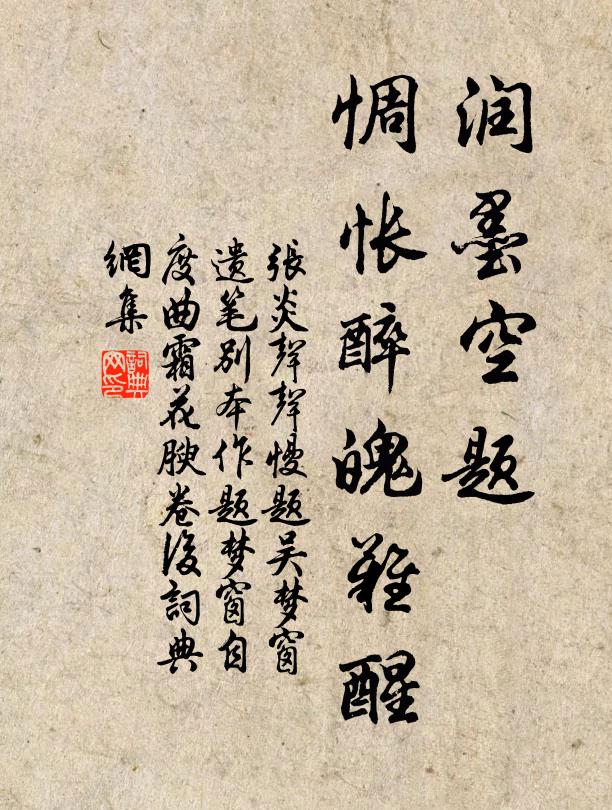 润墨空题
惆怅醉魄难醒
張炎聲聲慢题吴梦窗
遗笔别本作题梦窗自
度曲霜花腴卷後詞典
網集
詞典
网印